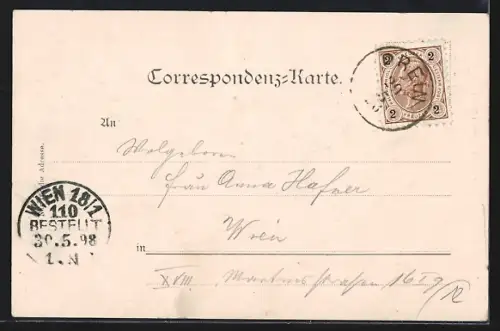 2 2
2 2
Correspondenz-Karte.
An
Wolgeboren
Frau Anna Hafner
Wien
in
XVIII. Martinsstrassen 16 I 9
12
Adresse.
WIEN 18/1
110
BESTELLT
30.5.98
1.N